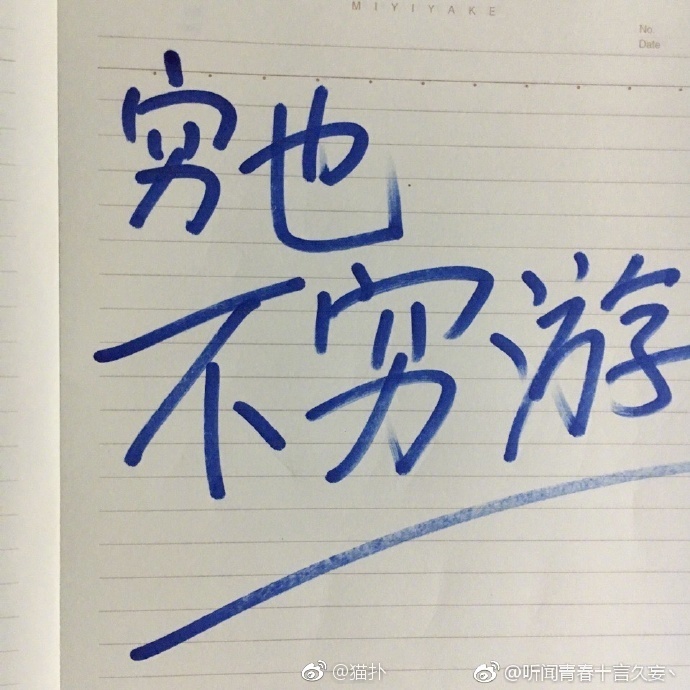 MIYIYAKE
No
Date
穷也
不穷游
@猫扑
@听闻青春十言久妄丶